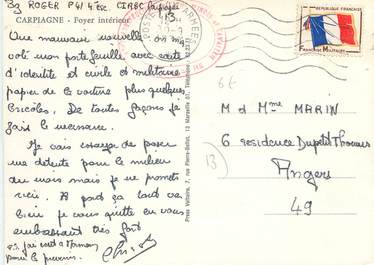 Bg ROGER P 41 4ᵉ esc CIABC
CARPIAGNE - Foyer intérieur
Une mauvaise nouvelle on m'a
volé mon portefeuille avec carte
d'identité et civile et militaire
papier de la voiture plus quelques
bricoles. De toutes façons je
fais le nécessaire.
Je vais essayer de poser
une détente pour le milieu
du mois mais je ne promets
rien. A part ça tout va
bien je vous quitte en vous
embrassant très fort
P.S. j'ai écrit à
pour la prévenir.
Press Voltaire, 7, rue Pierre-Dollot, 13 Marseille 07, Téléphone
POSTE AUX ARMEES
13
REPUBLIQUE FRANÇAISE
FRANCHISE MILITAIRE
6€
M et Mᵐᵉ MARIN
6 résidence Dupetit Thouars
Angers
49
13